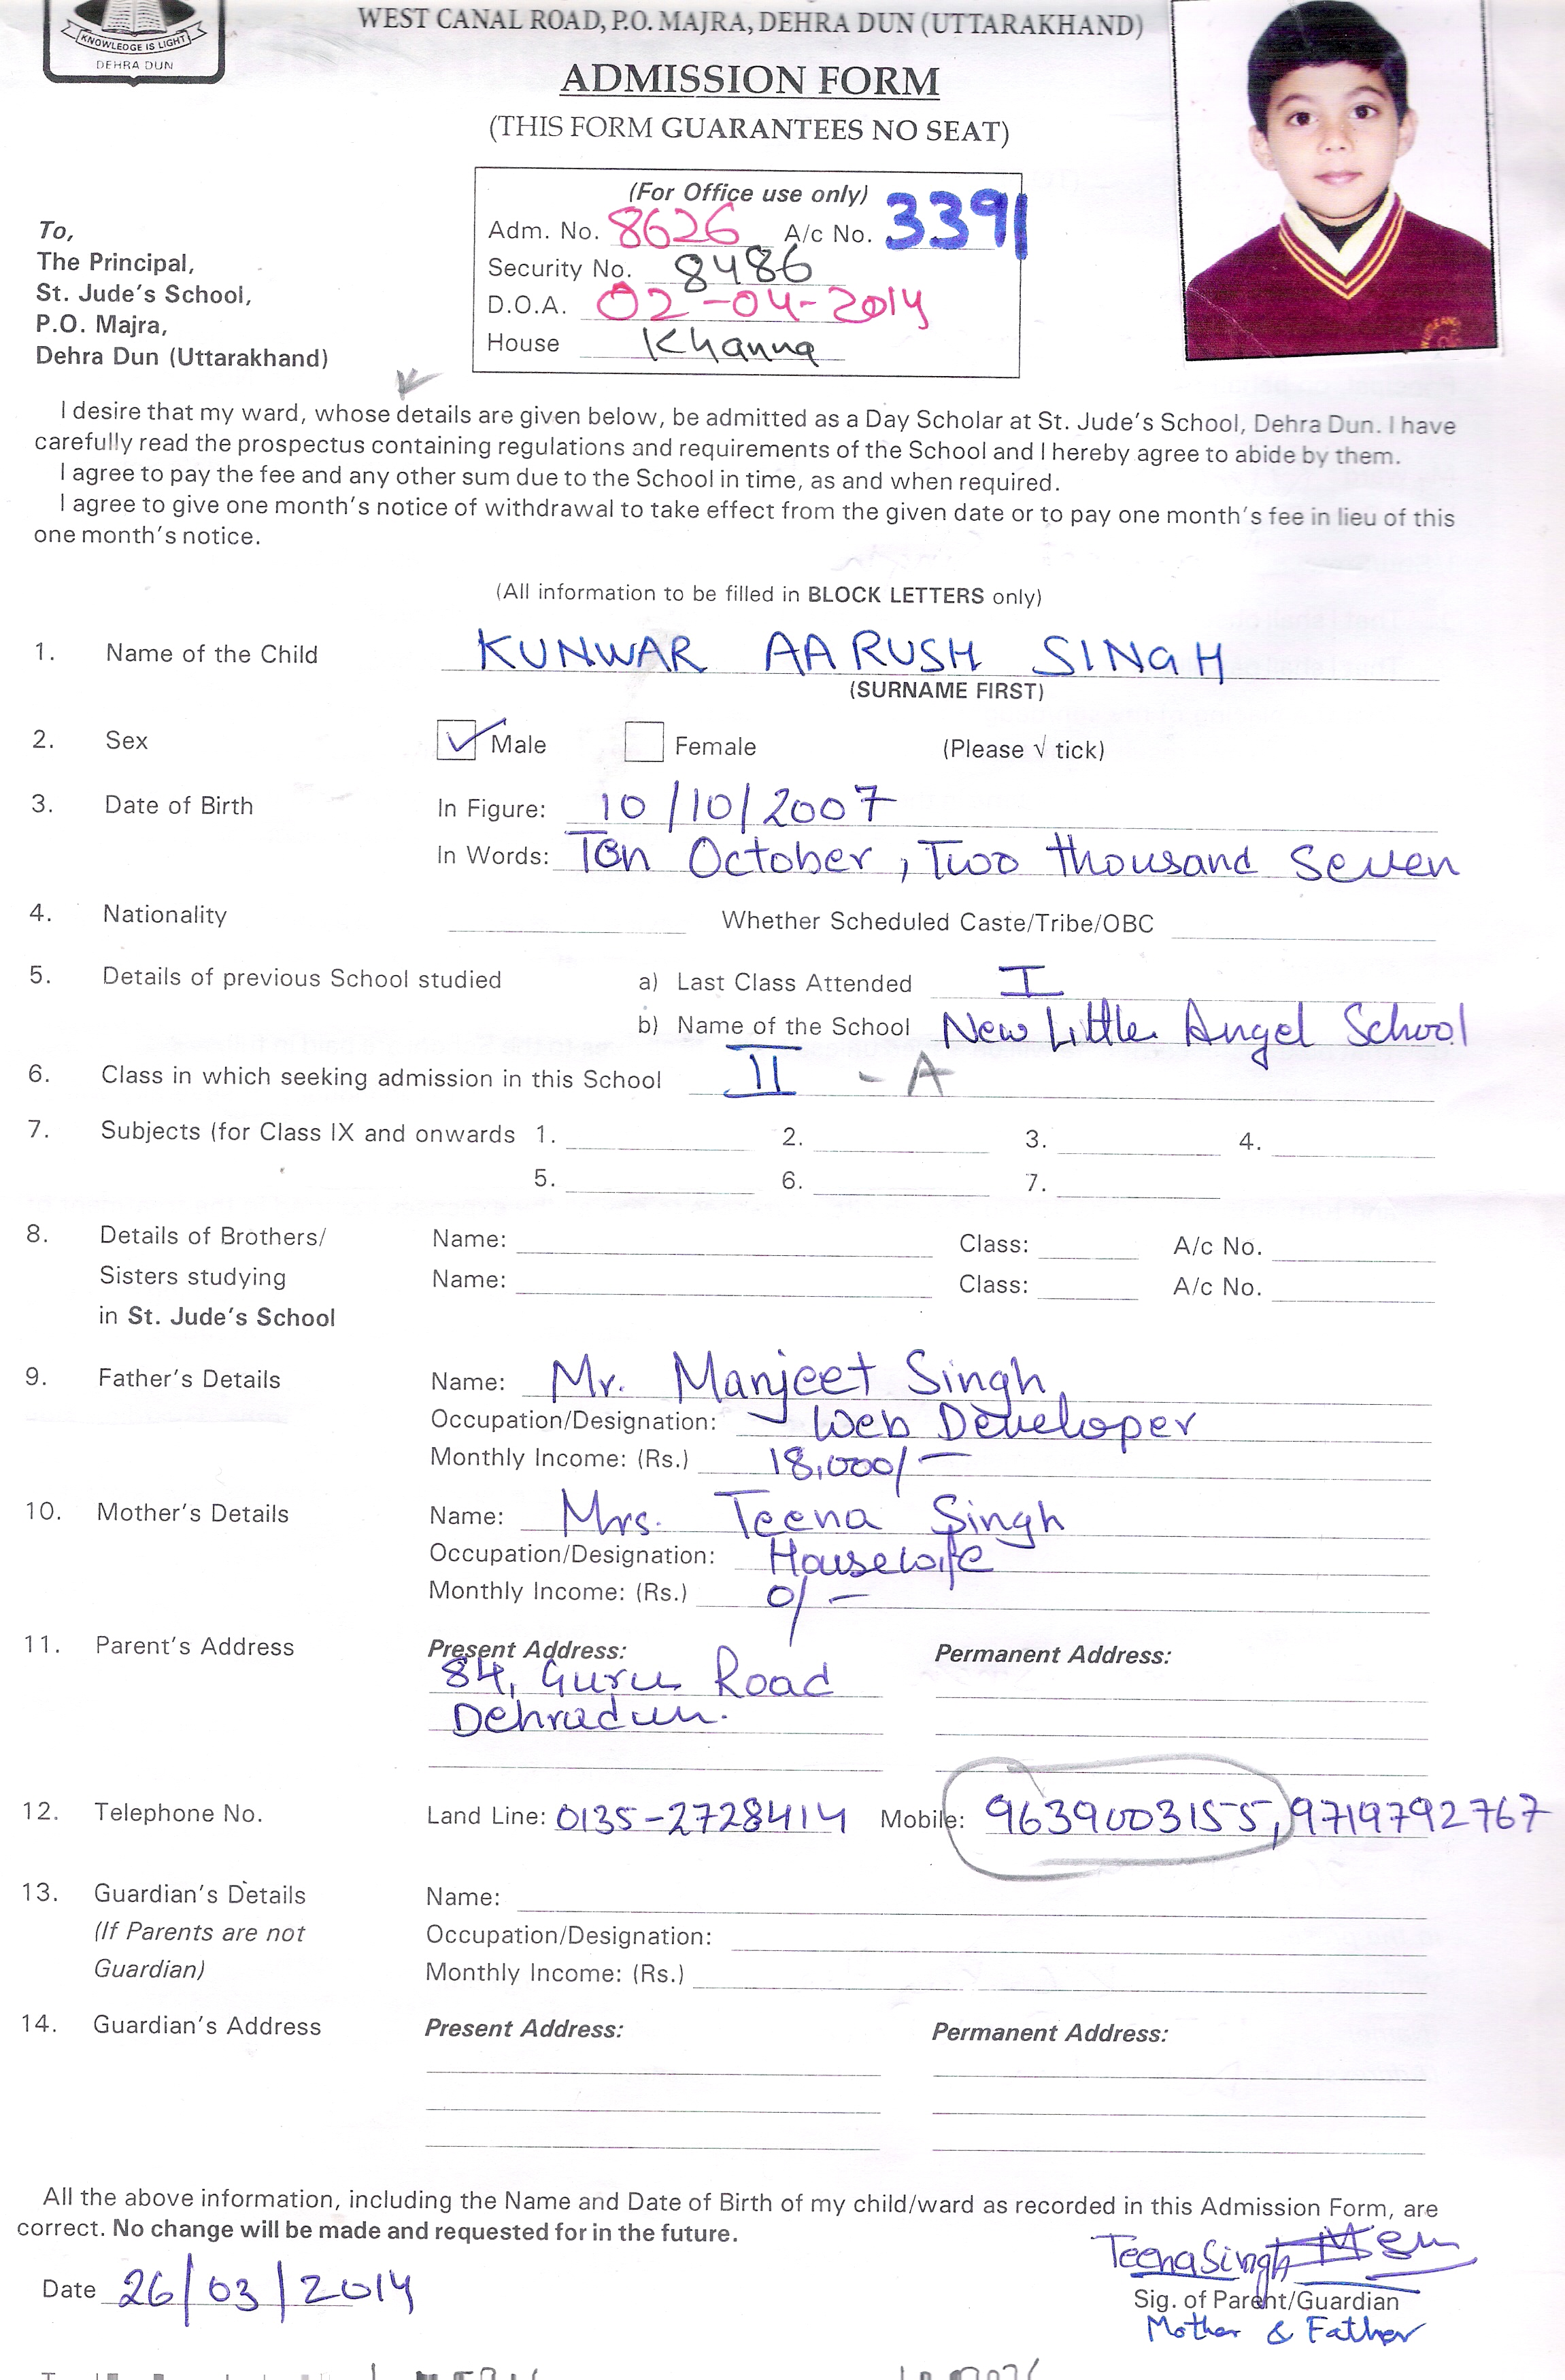 KNOWLEDGE IS LIGHT
DEHRA DUN
WEST CANAL ROAD, P.O. MAJRA, DEHRA DUN (UTTARAKHAND)
ADMISSION FORM
(THIS FORM GUARANTEES NO SEAT)
(For Office use only)
Adm. No. 8626 A/c No. 3391
Security No. 8486
D.O.A. 02-04-2014
House Khanna
To,
The Principal,
St. Jude's School,
P.O. Majra,
Dehra Dun (Uttarakhand)
I desire that my ward, whose details are given below, be admitted as a Day Scholar at St. Jude's School, Dehra Dun. I have
carefully read the prospectus containing regulations and requirements of the School and I hereby agree to abide by them.
I agree to pay the fee and any other sum due to the School in time, as and when required.
I agree to give one month's notice of withdrawal to take effect from the given date or to pay one month's fee in lieu of this
one month's notice.
(All information to be filled in BLOCK LETTERS only)
1. Name of the Child KUNWAR AARUSH SINGH
(SURNAME FIRST)
2. Sex Male Female (Please √ tick)
3. Date of Birth In Figure: 10/10/2007
In Words: Ten October, Two thousand Seven
4. Nationality Whether Scheduled Caste/Tribe/OBC
5. Details of previous School studied a) Last Class Attended I
b) Name of the School New Little Angel School
6. Class in which seeking admission in this School II - A
7. Subjects (for Class IX and onwards 1. 2. 3. 4.
5. 6. 7.
8. Details of Brothers/ Name: Class: A/c No.
Sisters studying Name: Class: A/c No.
in St. Jude's School
9. Father's Details Name: Mr. Manjeet Singh
Occupation/Designation: Web Developer
Monthly Income: (Rs.) 18,000/-
10. Mother's Details Name: Mrs. Teena Singh
Occupation/Designation: Housewife
Monthly Income: (Rs.) 0/-
11. Parent's Address Present Address: Permanent Address:
84, Guru Road
Dehradun.
12. Telephone No. Land Line: 0135-2728414 Mobile: 9639003155, 9719792767
13. Guardian's Details Name:
(If Parents are not Occupation/Designation:
Guardian) Monthly Income: (Rs.)
14. Guardian's Address Present Address: Permanent Address:
All the above information, including the Name and Date of Birth of my child/ward as recorded in this Admission Form, are
correct. No change will be made and requested for in the future.
Teena Singh
Date 26/03/2014
Sig. of Parent/Guardian
Mother & Father